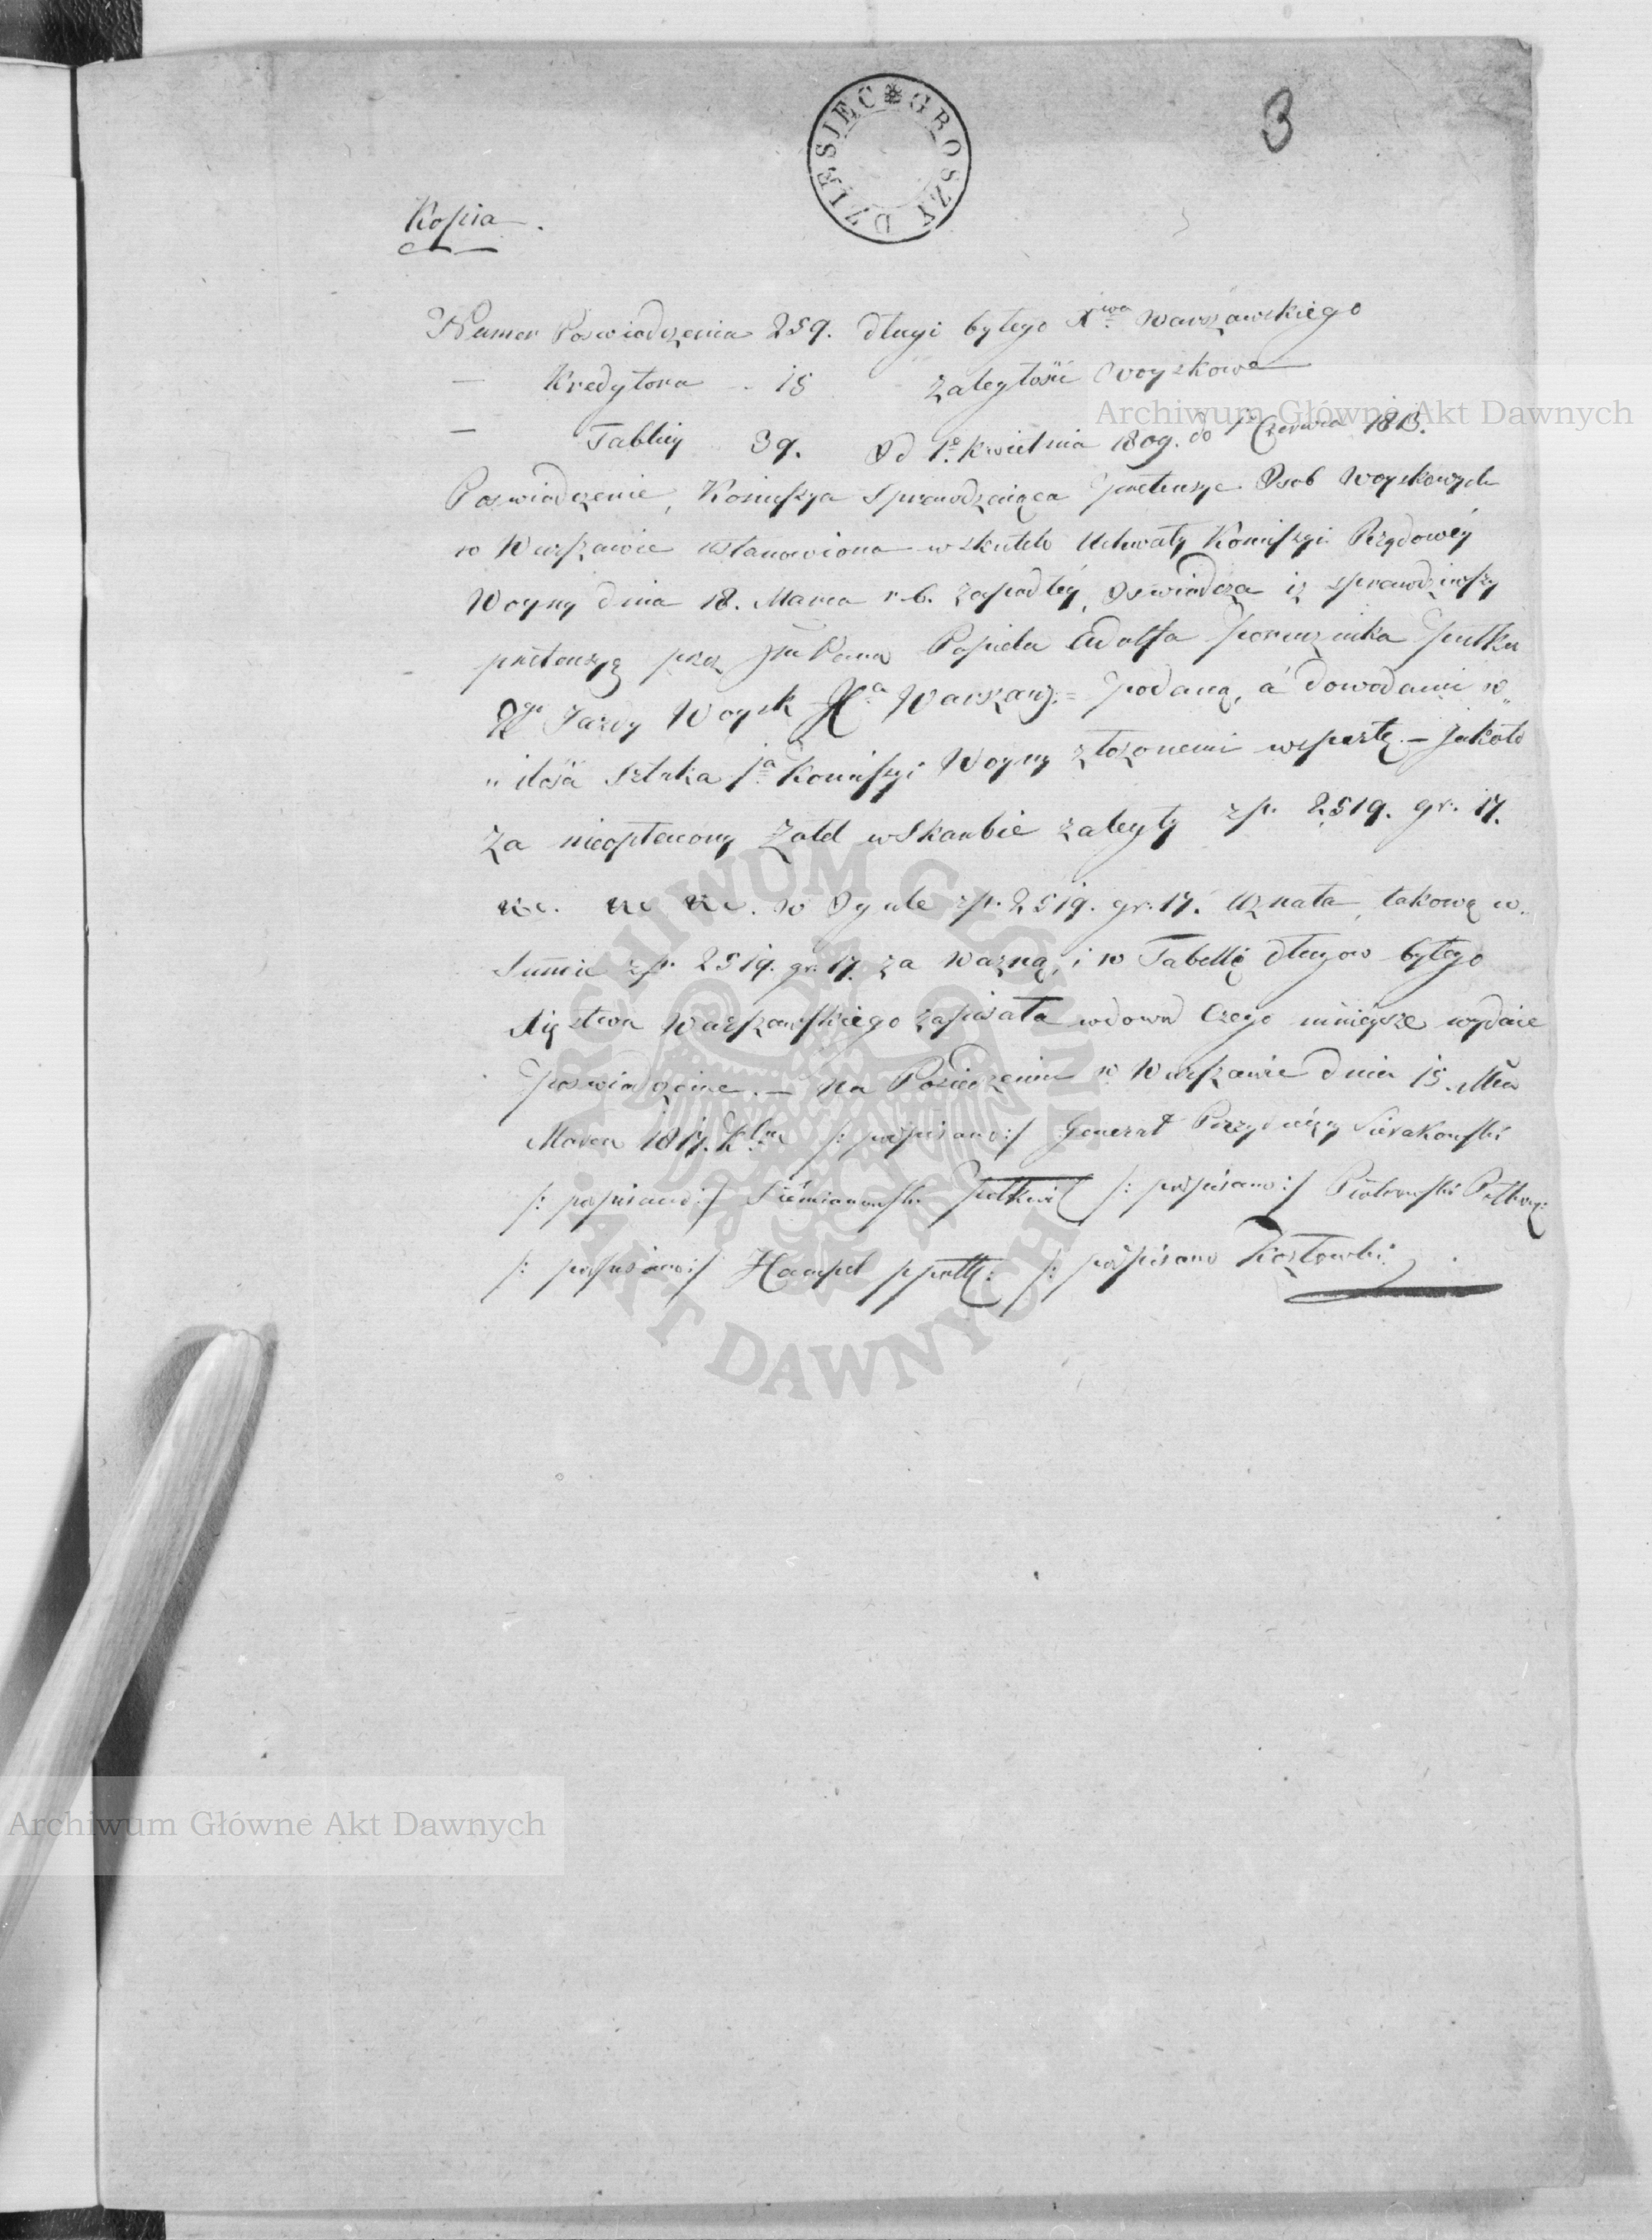 DZIESIEC GROSZY
3
Kopia.
Numer Poswiadczenia 259. długi byłego Xwa Warszawskiego
— Kredytora .. 15 zaległość Woyskowa
Archiwum Główne Akt Dawnych
— Tablicy 39. Od 1o Kwietnia 1809. do 1o Czerwca 1813.
Poswiadczenie, Komissya Sprawdzaiąca pretensye Osob Woyskowych
w Warszawie ustanowiona w skutek Uchwały Komissyi Rządowéy
Woyny dnia 18. Marca r. b. zapadłéy, Oswiadcza iż sprawdziwszy
pretensyą przez Pana Popiela Adolfa Porucznika Pułku
go Jazdy Woysk Xa Warszaw: podaną, á dowodami w
ilości Sztuka 1a Komissyi Woyny złożonemi wspartą. — Jakoto
Za nieopłacony Żołd w Skarbie zaległy zp. 2519. gr. 17.
&c. &c &c. w Ogule zp. 2519. gr. 17. Uznała, takową w
Summie zp. 2519. gr. 17. za ważną, i w Tabellę długow byłego
Xięztwa Warszawskiego zapisała w dowod czego ninieysze wydaie
poswiadczenie. — Na Posiedzeniu w Warszawie dnia 15. Mca
Marca 1817. /: podpisano :/ Generał Prezyduiący Sierakowski
/: podpisano :/ Siemianowski Pułkow /: podpisano :/ Piotrowski Pułkow:
/: podpisano :/ Hampel ppułk: /: podpisano Kozłowski
ARCHIWUM GŁÓWNE AKT DAWNYCH
Archiwum Główne Akt Dawnych